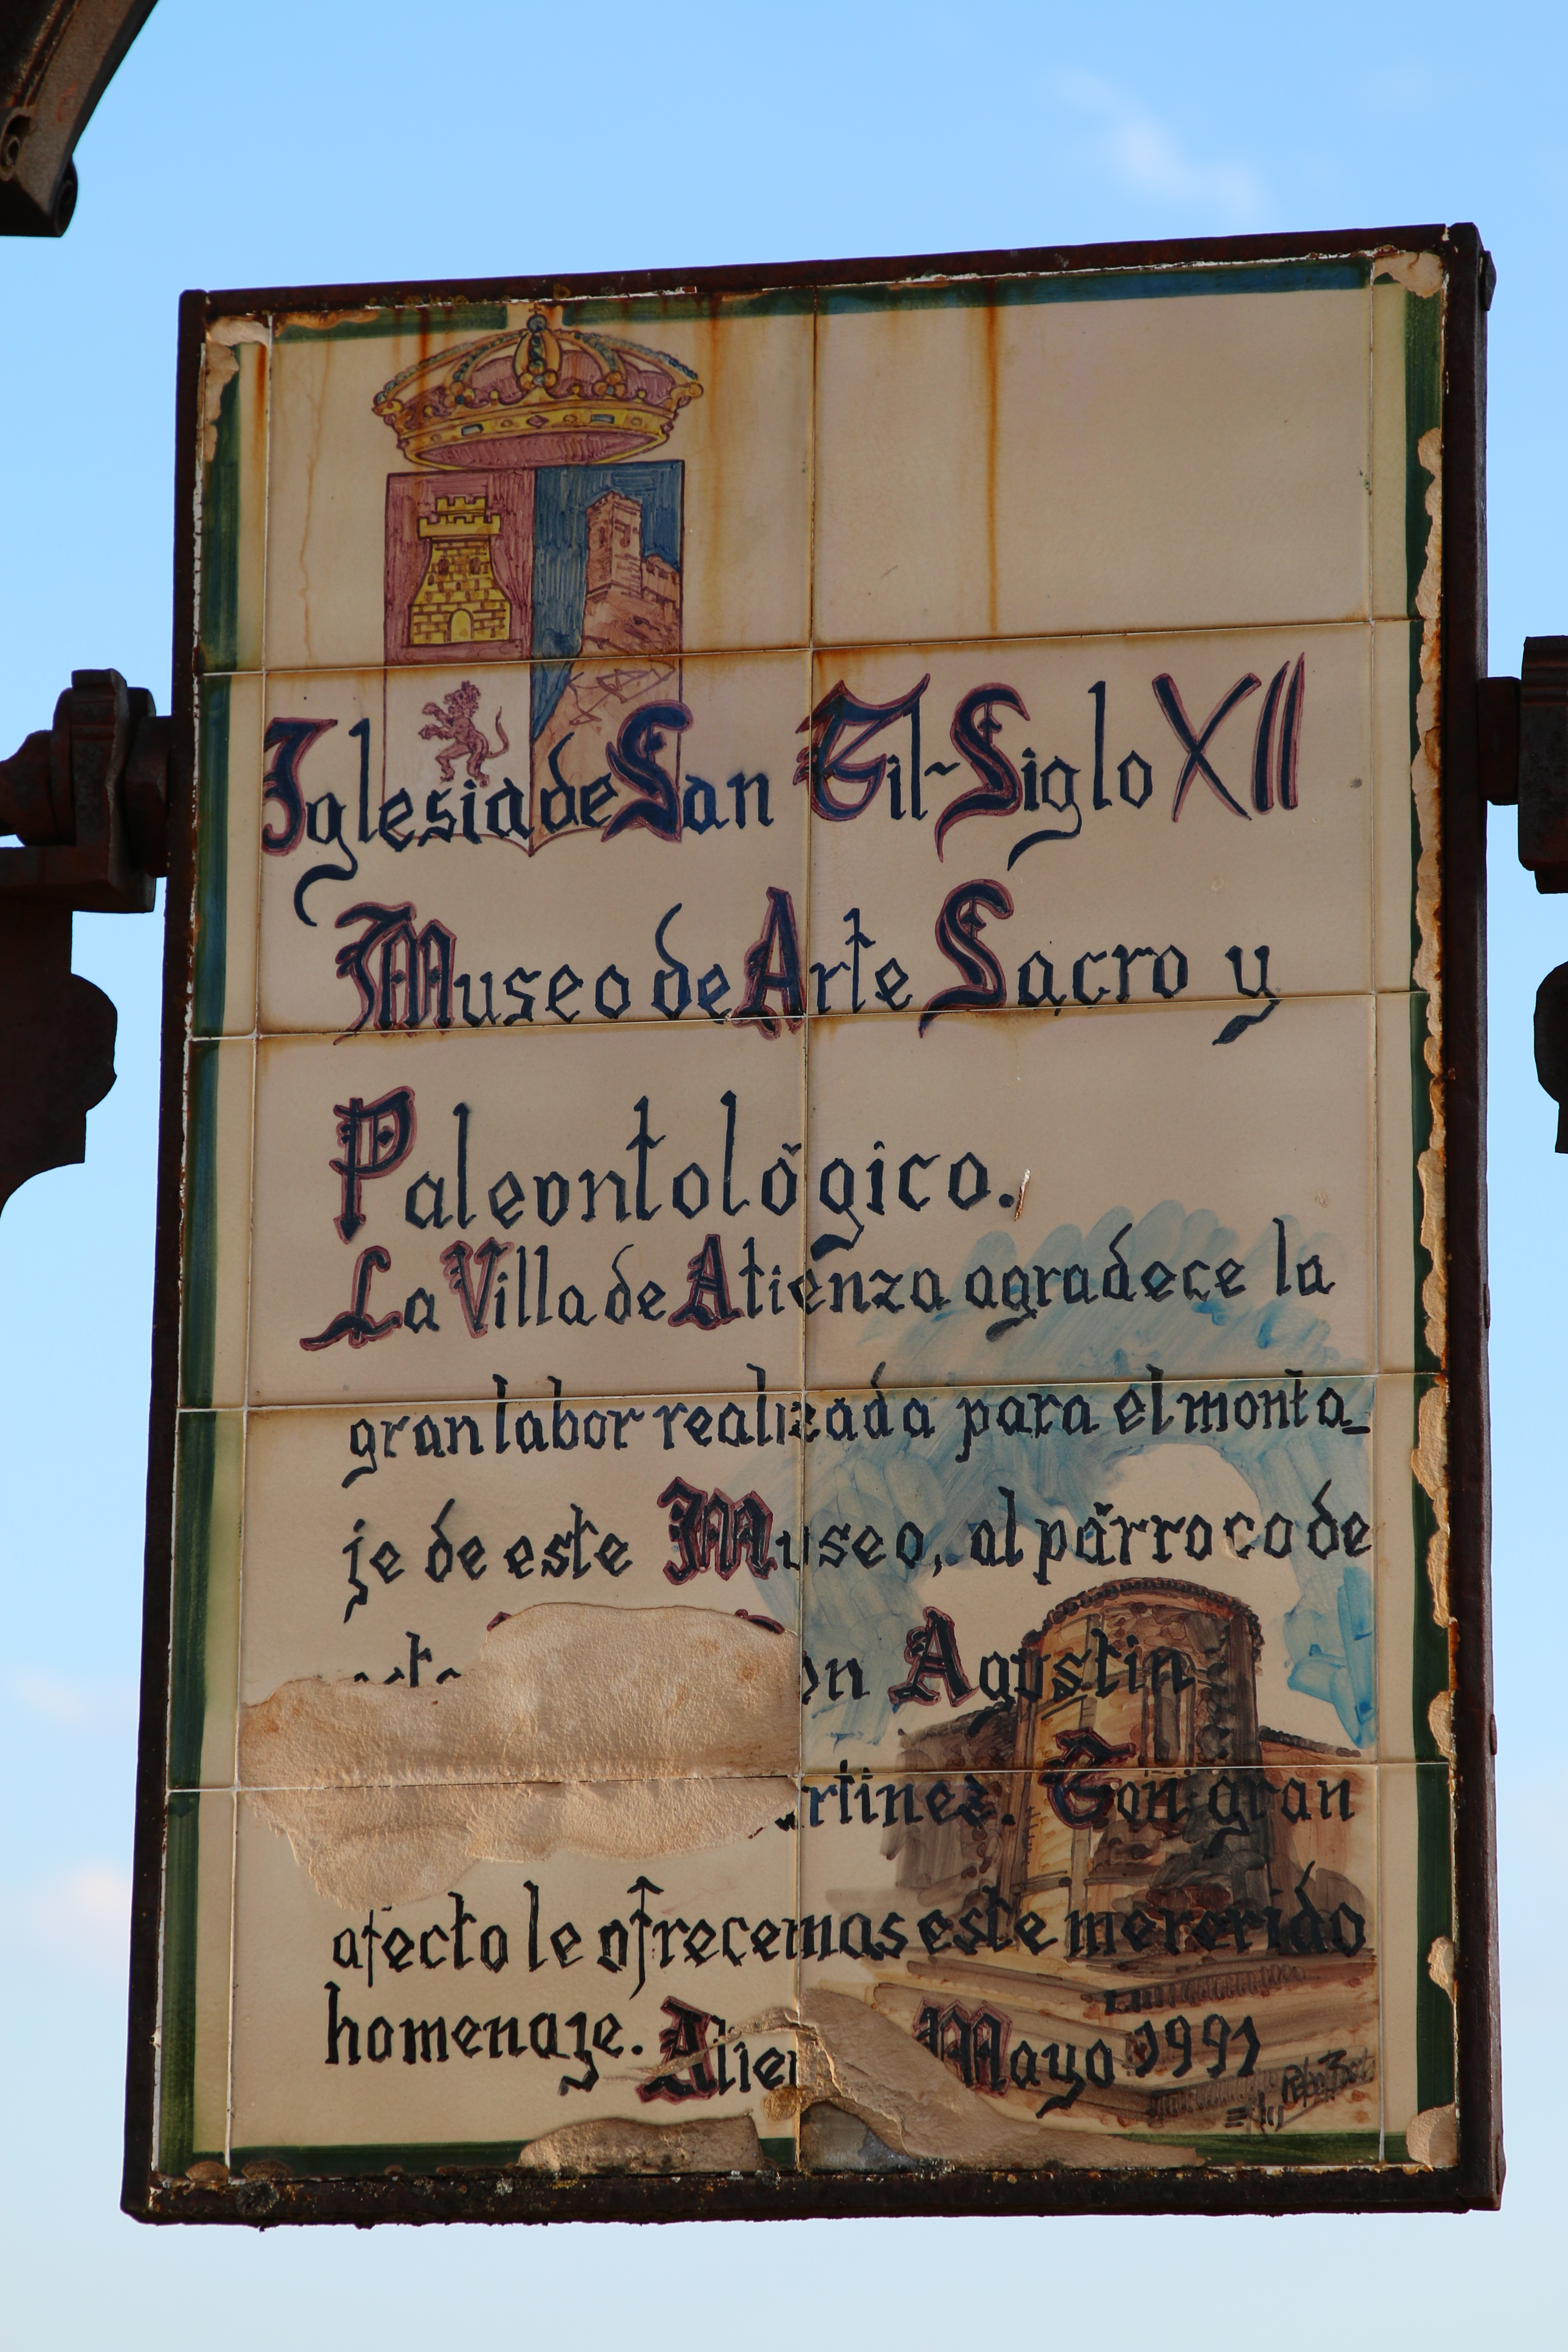 Iglesia de San Gil~Siglo XII
Museo de Arte Sacro y
Paleontológico.
La Villa de Atienza agradece la
gran labor realizada para el monta_
je de este Museo, al párroco de
Agustin
Con gran
afecto le ofrecemos este merecido
homenaje. Mayo 1991